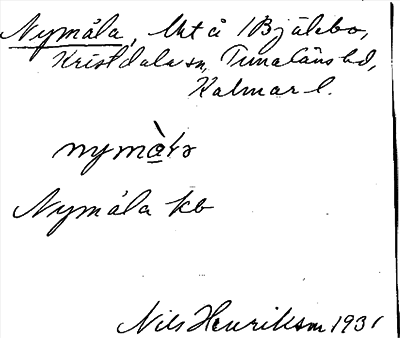 Nymåla, Uti å 1 Bjälebo,
Kristdala sn, Tunaläns hd,
Kalmar l.
nymàla
Nymåla kb
Nils Henriksson 1931